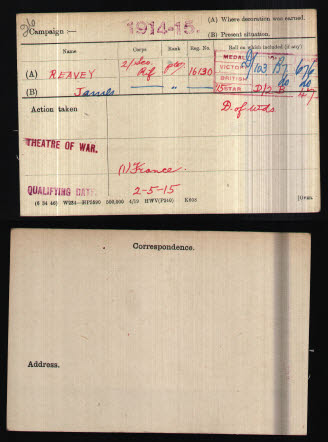 Campaign :— 1914-15. (A) Where decoration was earned.
(B) Present situation.
Name Corps Rank Reg. No. Roll on which included (if any)
MEDAL
(A) REAVEY 2/Sco. Rif Pte 16130 VICTORY J/103 B7 676
(B) James — " — " BRITISH do do
15 STAR D/2 B 47
Action taken D. of Wds
THEATRE OF WAR.
(1) France.
QUALIFYING DATE. 2-5-15
(6 34 46) W234—HP5590 500,000 4/19 HWV(P240) K608 [OVER.
Correspondence.
Address.